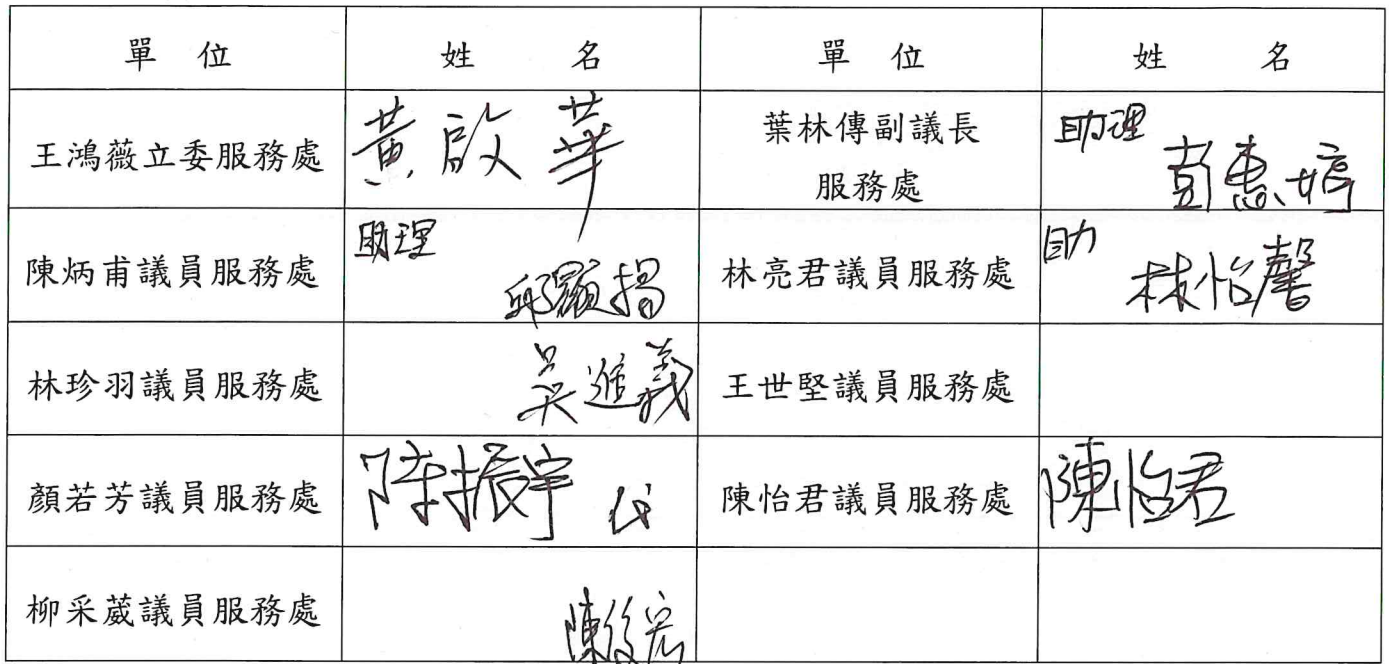 單 位 姓 名 單 位 姓 名
王鴻薇立委服務處 黃啟華 葉林傳副議長 助理
服務處 彭惠婷
陳炳甫議員服務處 助理 邱顯揚 林亮君議員服務處 助 林怡馨
林珍羽議員服務處 吳進義 王世堅議員服務處
顏若芳議員服務處 陳振宇 代 陳怡君議員服務處 陳怡君
柳采葳議員服務處 陳俊宏